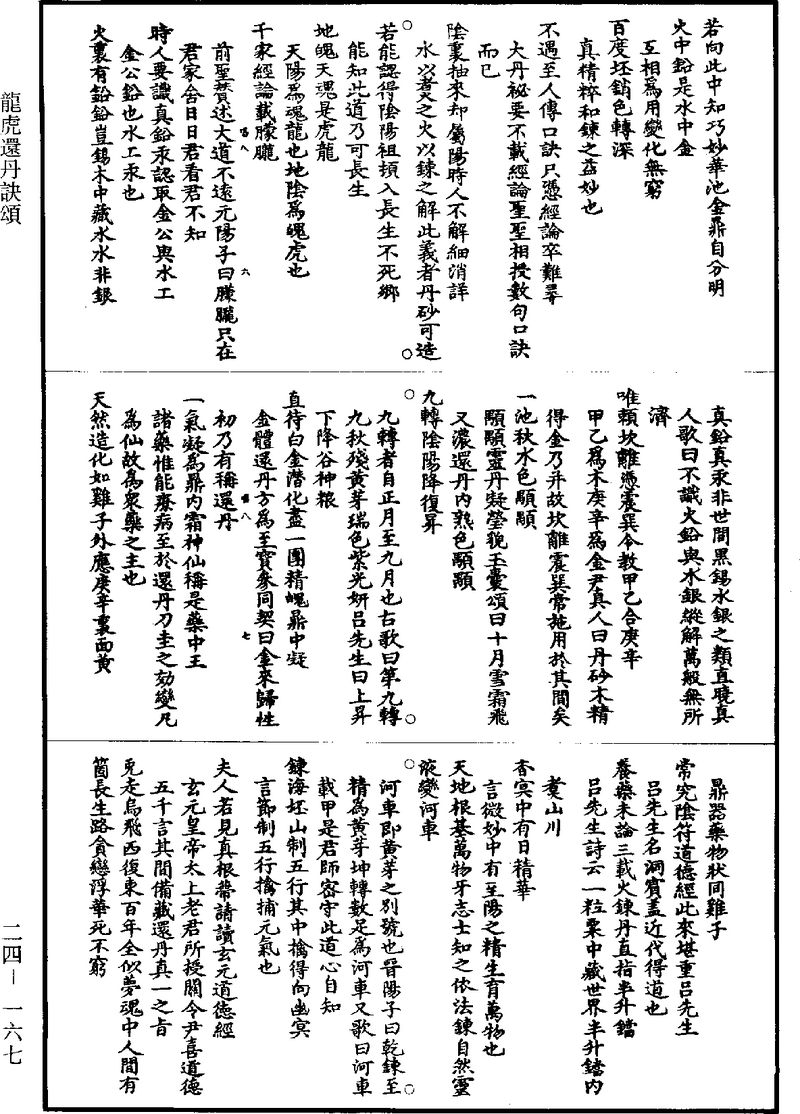 龍虎還丹訣頌
二四—一六七
若向此中知巧妙華池金鼎自分明
火中鉛是水中金
互相爲用變化無窮
百度坯銷色轉深
真精粹和鍊之益妙也
不遇至人傳口訣只憑經論卒難尋
大丹祕要不載經論聖聖相授數句口訣
而已
陰裏抽來却屬陽時人不解細消詳
水以煑之火以鍊之解此義者丹砂可造
若能認得陰陽祖頓入長生不死鄉
能知此道乃可長生
地魄天魂是虎龍
天陽爲魂龍也地陰爲魄虎也
千家經論載朦朧
前聖贊述大道不遠元陽子曰朦朧只在
君家舍日日君看君不知
時人要識真鉛汞認取金公與水工
金公鉛也水工汞也
火裏有鉛鉛豈錫木中藏水水非銀
真鉛真汞非世間黑錫水銀之類直曉真
人歌曰不識火鉛與水銀縱解萬般無所
濟
唯賴坎離憑震巽令教甲乙合庚辛
甲乙爲木庚辛爲金尹真人曰丹砂木精
得金乃并故坎離震巽常施用於其間矣
一池秋水色顒顒
顒顒靈丹凝瑩貌玉囊頌曰十月雪霜飛
又濃還丹内熟色顒顒
九轉陰陽降復昇
九轉者自正月至九月也古歌曰第九轉
九秋殘黄芽瑞色紫光妍吕先生曰上昇
下降谷神根
直待白金潛化盡一團精魄鼎中凝
金體還丹方爲至寶參同契曰金來歸性
初乃有稱還丹
一氣凝爲鼎内霜神仙稱是藥中王
諸藥惟能療病至於還丹刀圭之効變凡
爲仙故爲衆藥之主也
天然造化如雞子外應庚辛裏面黄
鼎器藥物狀同雞子
常究陰符道德經此來堪重吕先生
吕先生名洞賓蓋近代得道也
養藥未論三載火鍊丹直指半升鐺
吕先生詩云一粒粟中藏世界半升鐺内
煑山川
杳冥中有日精華
言微妙中有至陽之精生育萬物也
天地根基萬物牙志士知之依法鍊自然靈
液變河車
河車即黄芽之別號也晉陽子曰乾鍊至
精爲黄芽坤轉數足爲河車又歌曰河車
載甲是君師密守此道心自知
鍊海坯山制五行其中擒得向幽冥
言節制五行擒捕元氣也
夫人若見真根蔕請讀玄元道德經
玄元皇帝太上老君所授關令尹喜道德
五千言其間備藏還丹真一之旨
兎走烏飛西復東百年全似夢魂中人間有
箇長生路貪戀浮華死不窮